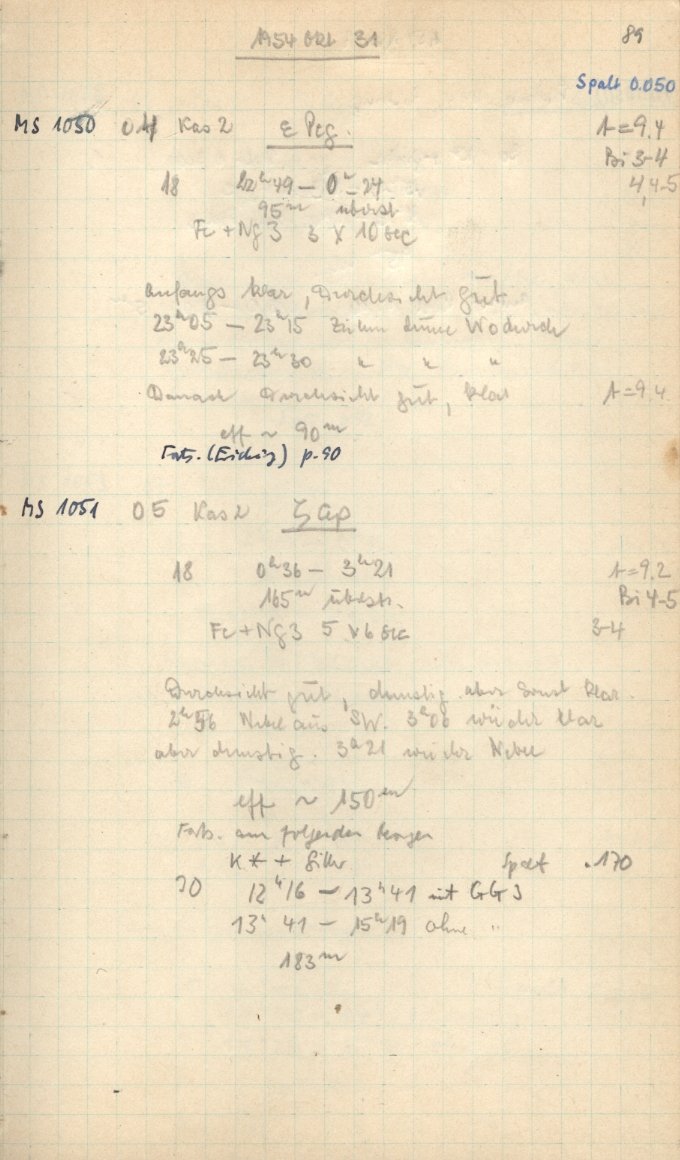 1954 Okt 31
89
Spalt 0.050
MS 1050 04 Kas 2 ε Peg. t = 9.4
Bi 3-4
18 22ʰ49 – 0ʰ24 4, 4-5
95ᵐ überst
Fe + Ng 3 3 x 10 sec
Anfangs klar, Durchsicht gut
23ʰ05 – 23ʰ15 Ziehen dünne durch
23ʰ25 – 23ʰ30 " " "
Danach Durchsicht gut, klar t = 9.4
eff ~ 90ᵐ
Forts. p. 90
MS 1051 05 Kas 2
18 0ʰ36 – 3ʰ21 t = 9.2
165ᵐ überstr. Bi 4-5
Fe + Ng 3 5 x 6 sec 3-4
Durchsicht gut, dunstig aber sonst klar.
2ʰ56 Nebel aus SW. 3ʰ06 wieder klar
aber dunstig. 3ʰ21 wieder Nebel
eff ~ 150ᵐ
Forts. am folgenden Morgen
K * + Spalt .170
20 12ʰ16 – 13ʰ41 mit GG
13ʰ41 – 15ʰ19 ohne "
183ᵐ